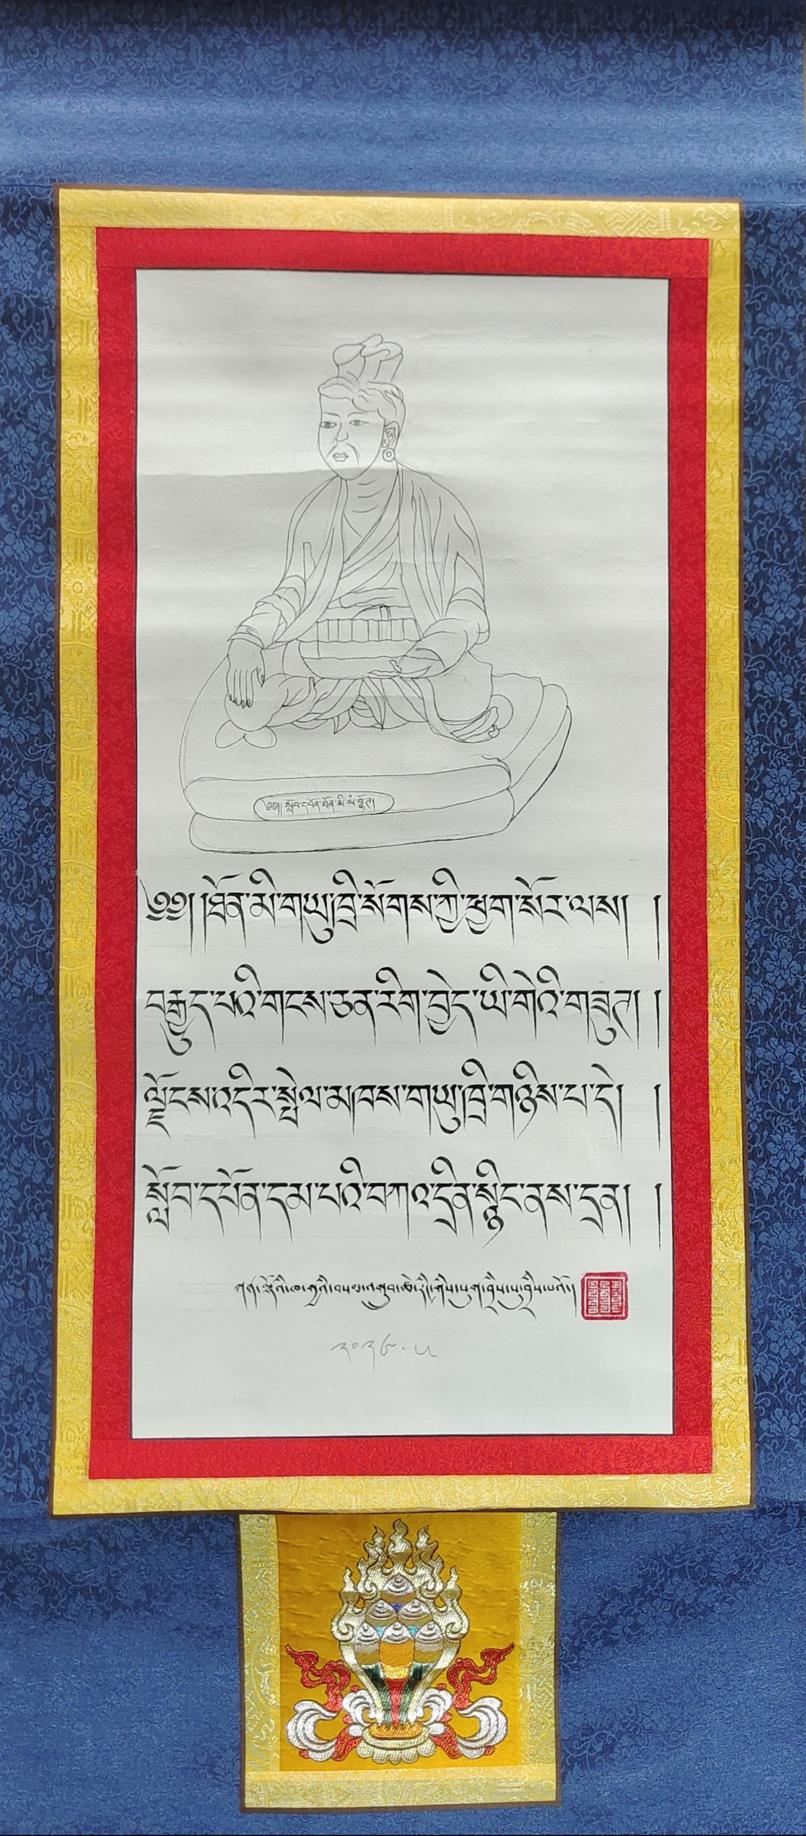 ༄༅། སློབ་དཔོན་ཐོན་མི་སཾ་བྷོ་ཊ།
༄༅། །ཐོན་མི་གཡུ་ཁྲི་སོགས་ཀྱི་ཕྱག་སོར་ལས། །
བརྒྱུད་པའི་གངས་ཅན་རིག་བྱེད་ཡི་གེའི་གཟུང། །
ལྗོངས་འདིར་སྤེལ་མཁས་གཡུ་ཁྲི་གཉིས་པ་དེ། །
སློབ་དཔོན་དམ་པའི་བཀའ་དྲིན་སྙིང་ནས་དྲན། །
༢༠༢༤.༥